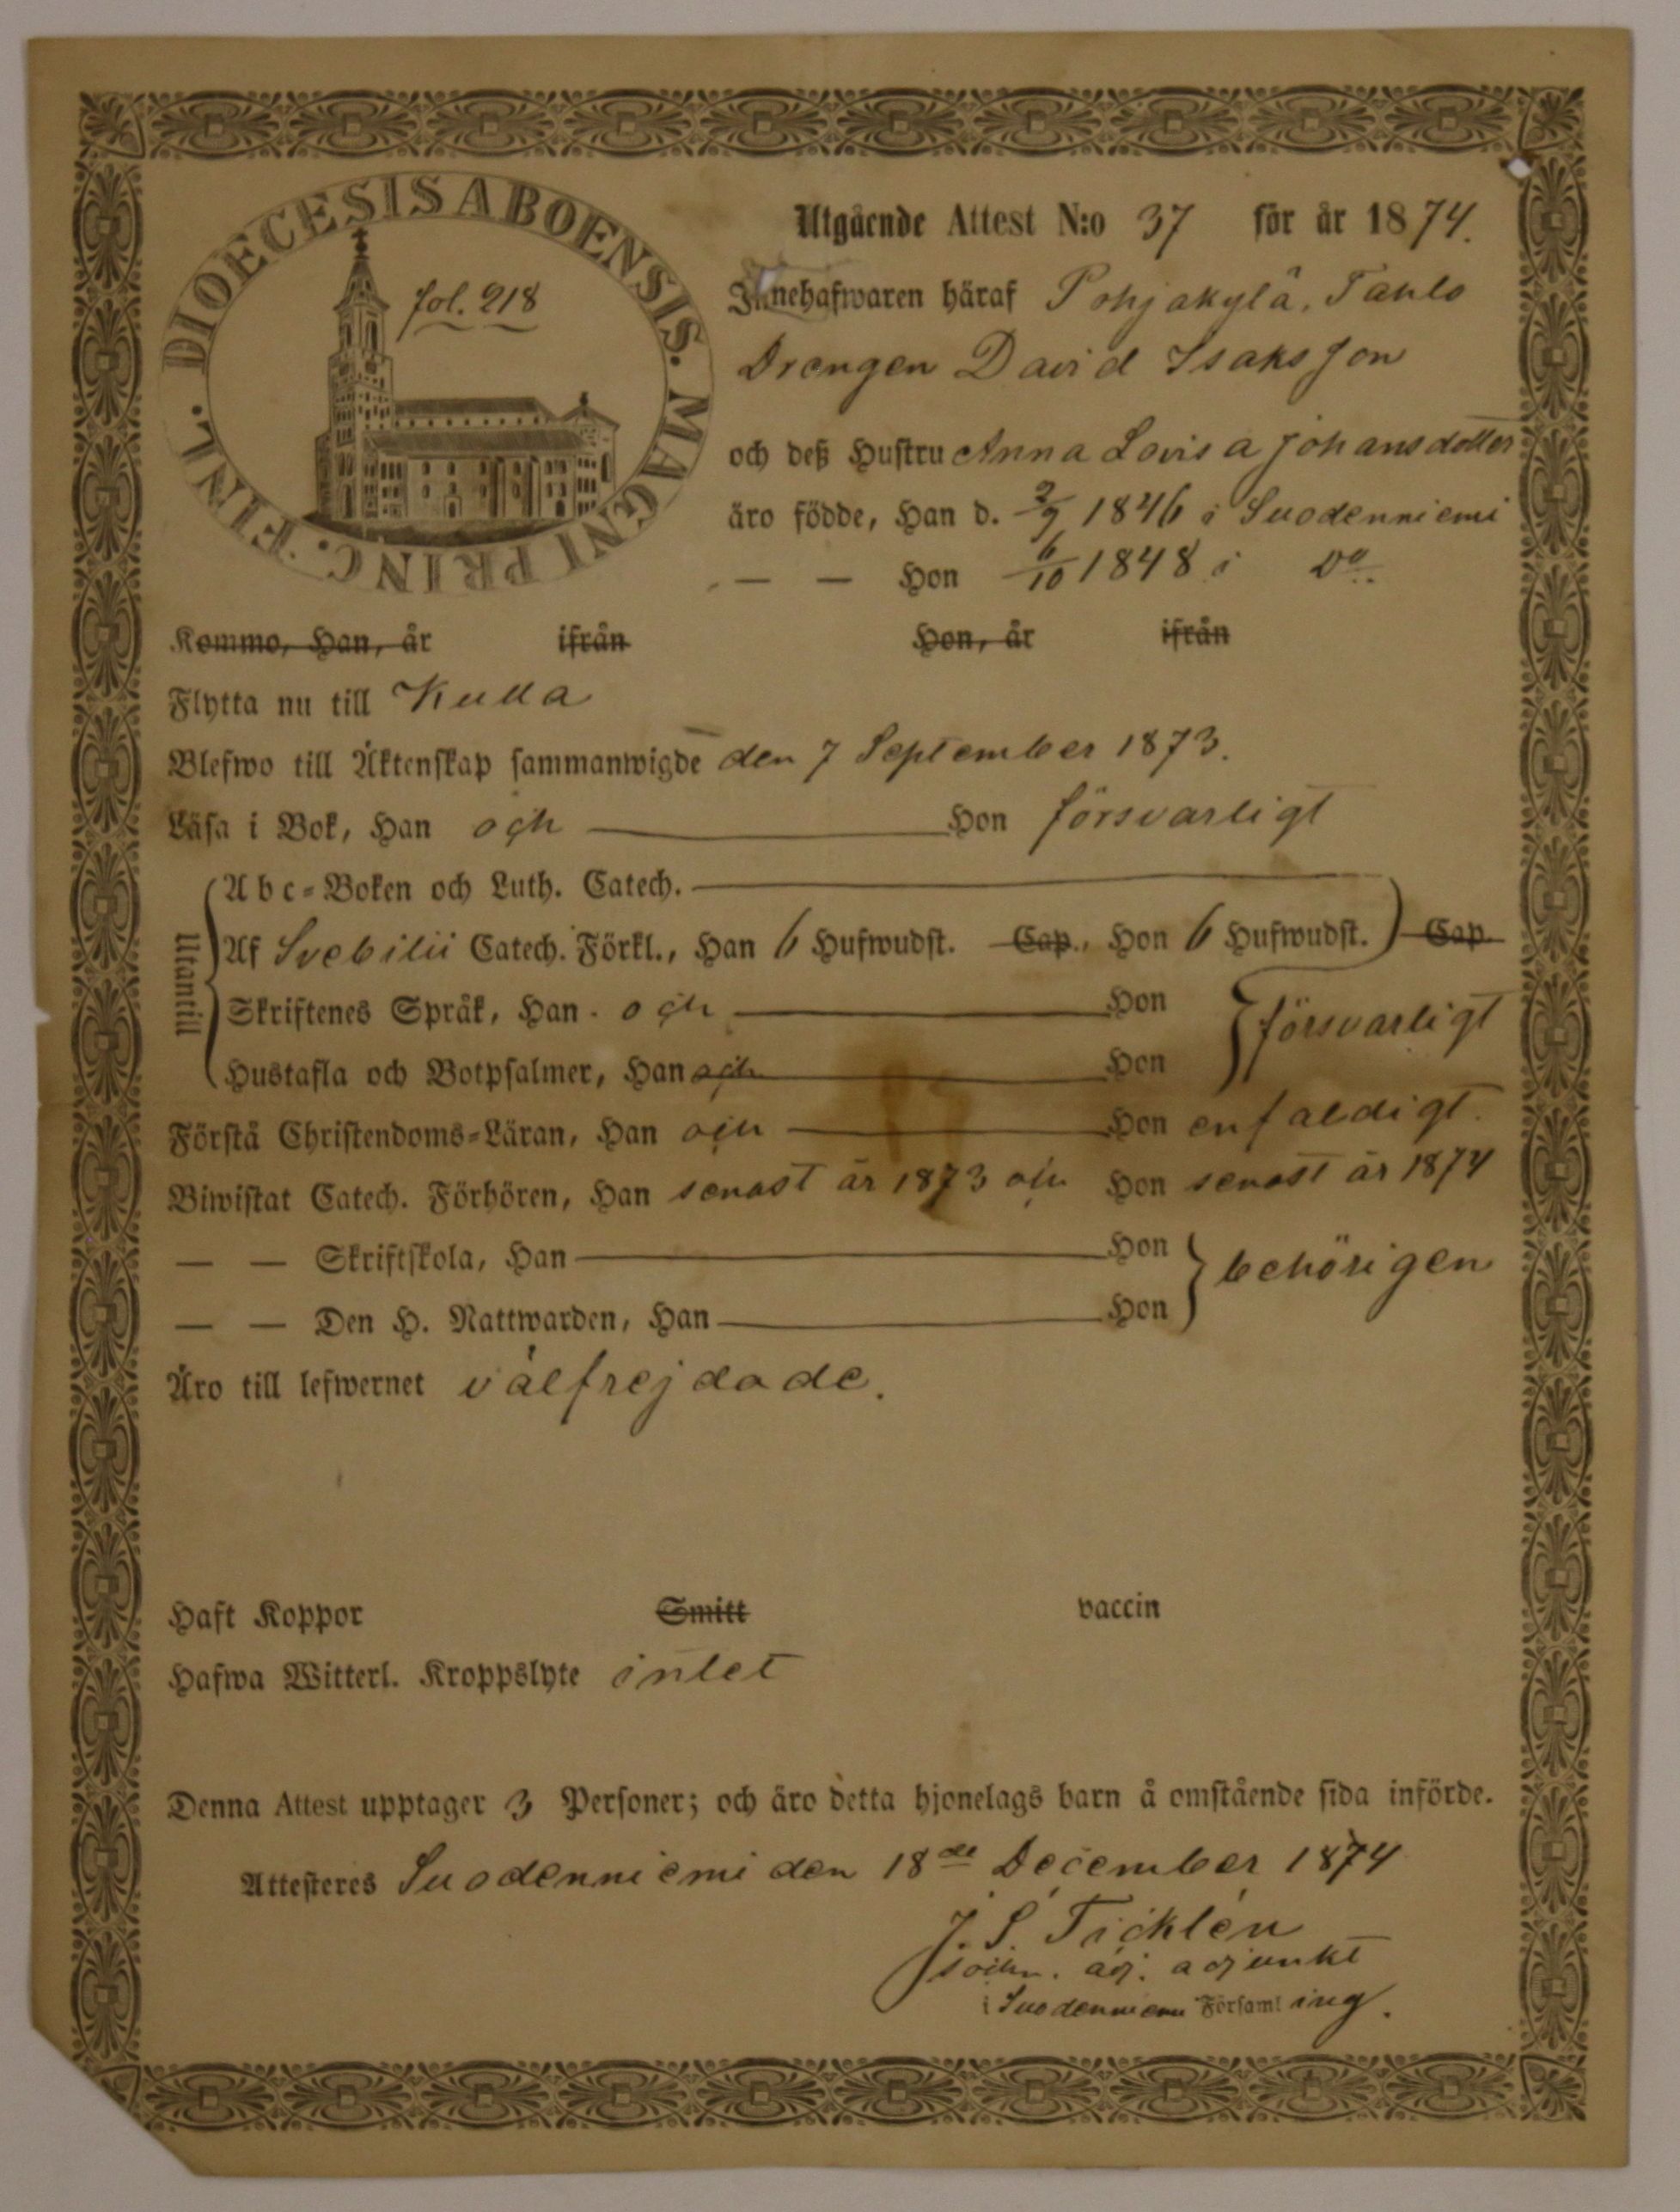 DIOECESIS ABOENSIS. MAGNI PRINC. FINL.
fol. 218
Utgående Attest N:o 37 för år 1874.
Innehafwaren häraf Pohjakylä, Tahlo
Drengen David Isaksson
och deß Hustru Anna Lovisa Johansdotter
äro födde, Han d. 2/9 1846 i Suodenniemi
— — Hon 6/10 1848 i Do
Kommo, Han, år ifrån Hon, år ifrån
Flytta nu till Kulla
Blefwo till Äktenskap sammanwigde den 7 September 1873.
Läsa i Bok, Han och Hon försvarligt
Utantill
Abc-Boken och Luth. Catech.
Af Svebilii Catech. Förkl., Han 6 Hufwudst. Cap., Hon 6 Hufwudst. Cap.
Skriftenes Språk, Han och Hon
försvarligt
Hustafla och Botpsalmer, Han och Hon
Förstå Christendoms-Läran, Han och Hon enfaldigt.
Biwistat Catech. Förhören, Han senast år 1873 och Hon senast år 1874
— — Skriftskola, Han Hon
behörigen
— — Den H. Nattwarden, Han Hon
Äro till lefwernet välfrejdade.
Haft Koppor Smitt vaccin
Hafwa Witterl. Kroppslyte intet
Denna Attest upptager 3 Personer; och äro detta hjonelags barn å omstående sida införde.
Attesteres Suodenniemi den 18de December 1874
J. S. Ticklén
adj. adjunkt
i Suodenniemi Församling.